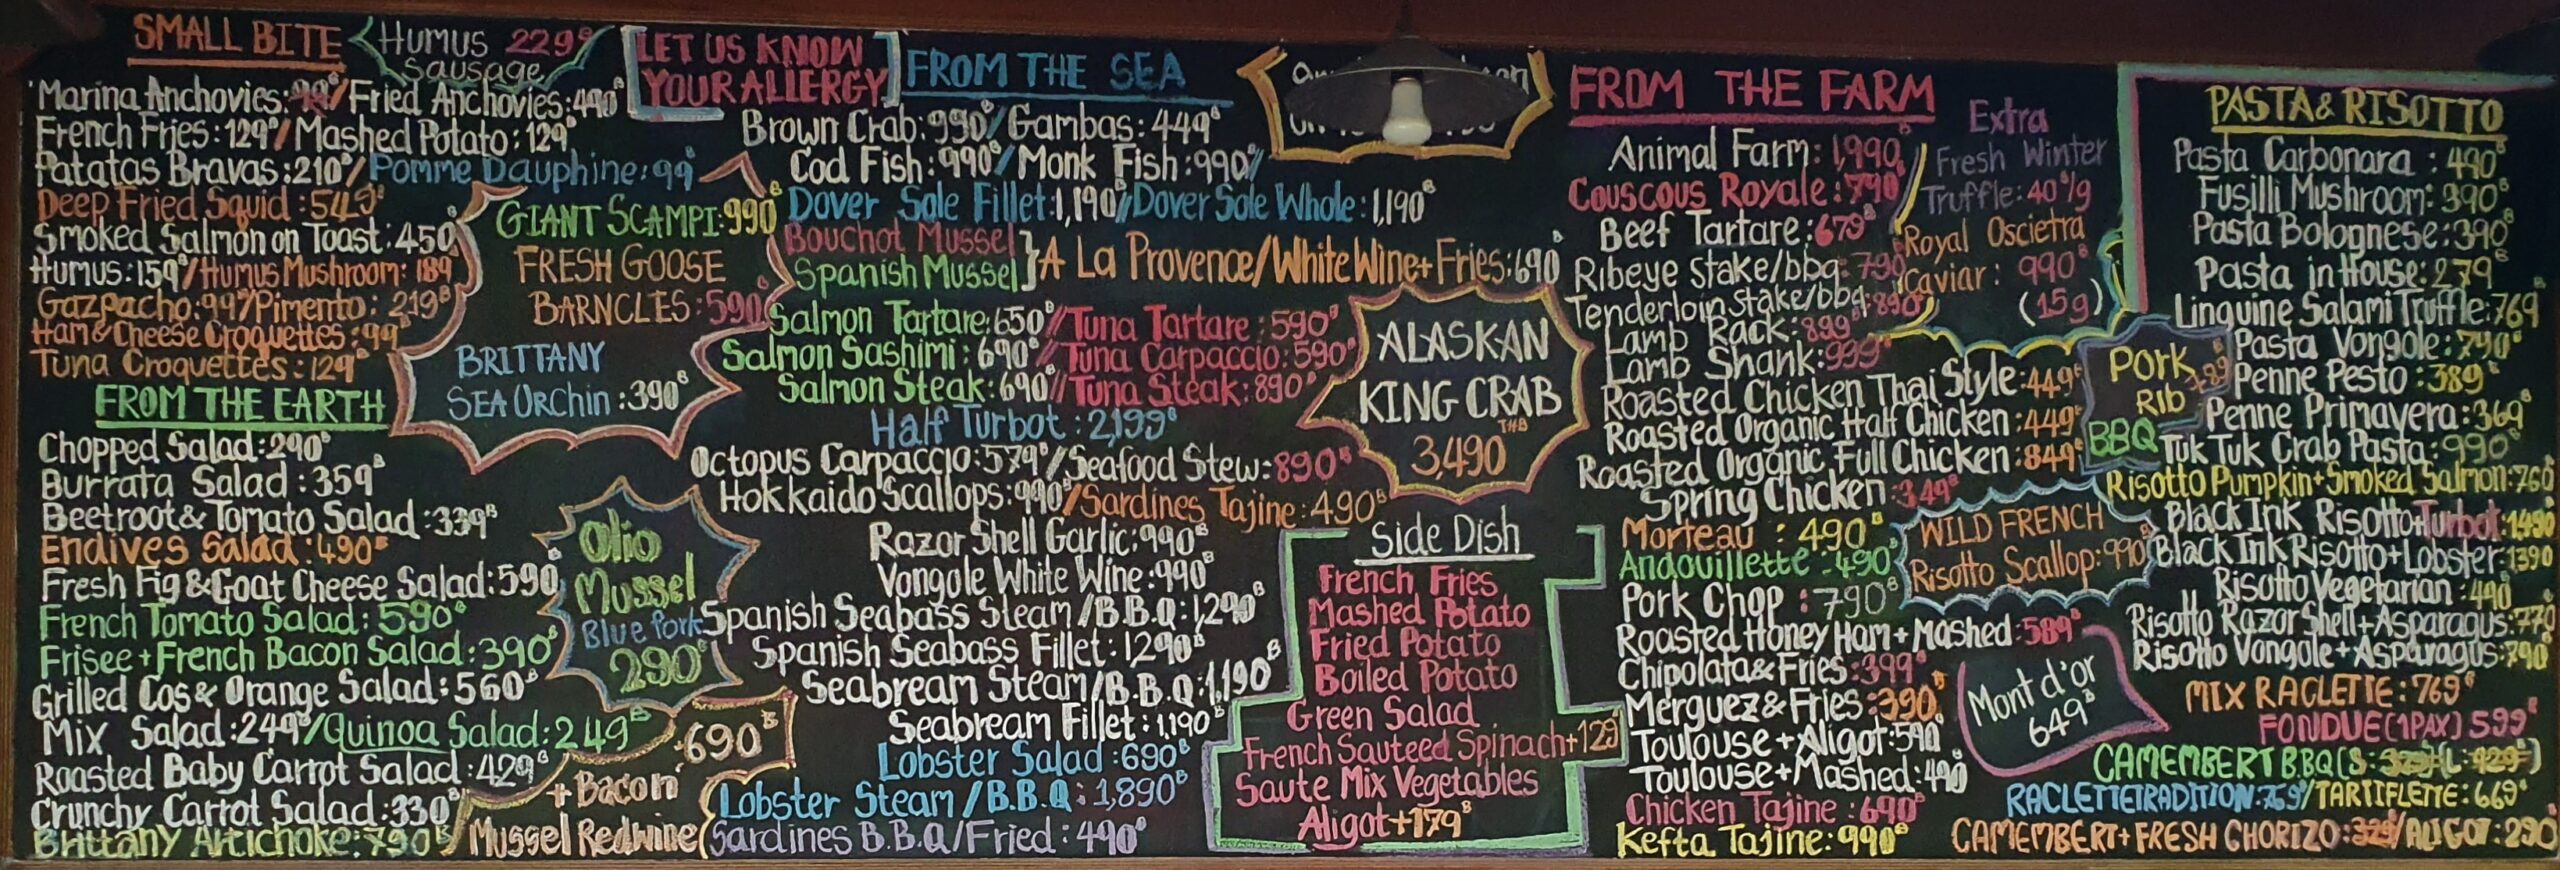 SMALL BITE
HUMUS 229฿
Sausage
Marina Anchovies: 99/Fried Anchovies: 490฿
French Fries: 129฿/Mashed Potato: 129฿
Patatas Bravas: 210฿/Pomme Dauphine: 99
Deep Fried Squid: 549฿
Smoked Salmon on Toast: 450฿
Humus: 159฿/Humus Mushroom: 189
Gazpacho: 99฿/Pimento: 219฿
Ham & Cheese Croquettes: 99฿
Tuna Croquettes: 129฿
FROM THE EARTH
Chopped Salad: 290฿
Burrata Salad: 359฿
Beetroot & Tomato Salad: 339฿
Endives Salad: 490฿
Fresh Fig & Goat Cheese Salad: 590฿
French Tomato Salad: 590฿
Frisee + French Bacon Salad: 390฿
Grilled Cos & Orange Salad: 560฿
Mix Salad: 249฿/Quinoa Salad: 249฿
Roasted Baby Carrot Salad: 429฿
Crunchy Carrot Salad: 330฿
Brittany Artichoke: 790฿
LET US KNOW
YOUR ALLERGY
GIANT SCAMPI: 990฿
FRESH GOOSE
BARNCLES: 590฿
BRITTANY
SEA URChin: 390฿
Olio
Mussel
Blue Pork
290฿
+690฿
+Bacon
Mussel Redwine
FROM THE SEA
Brown Crab: 990฿/Gambas: 449฿
Cod Fish: 990฿/Monk Fish: 990฿/
Dover Sole Fillet: 1,190฿//Dover Sole Whole: 1,190฿
Bouchot Mussel
Spanish Mussel } A La Provence/White Wine + Fries: 690฿
Salmon Tartare: 650฿//Tuna Tartare: 590฿
Salmon Sashimi: 690฿//Tuna Carpaccio: 590฿
Salmon Steak: 690฿//Tuna Steak: 890฿
Half Turbot: 2,199฿
Octopus Carpaccio: 579฿/Seafood Stew: 890฿
Hokkaido Scallops: 990฿/Sardines Tajine: 490฿
Razor Shell Garlic: 990฿
Vongole White Wine: 990฿
Spanish Seabass Steam/B.B.Q: 1,290฿
Spanish Seabass Fillet: 1290฿
Seabream Steam/B.B.Q: 1,190฿
Seabream Fillet: 1,190฿
Lobster Salad: 690฿
Lobster Steam/B.B.Q: 1,890฿
Sardines B.B.Q/Fried: 490฿
ALASKAN
KING CRAB
3,490 THB
Side Dish
French Fries
Mashed Potato
Fried Potato
Boiled Potato
Green Salad
French Sauteed Spinach +129
Saute Mix Vegetables
Aligot +179฿
FROM THE FARM
Animal Farm: 1,990฿
Couscous Royale: 790฿
Beef Tartare: 679฿
Ribeye Stake/bbq: 790
Tenderloin Stake/bbq: 890฿
Lamb Rack: 899฿
Lamb Shank: 999฿
Roasted Chicken Thai Style: 449฿
Roasted Organic Half Chicken: 449฿
Roasted Organic Full Chicken: 849฿
Spring Chicken: 349฿
Morteau: 490฿
Andouillette: 490฿
Pork Chop: 790฿
Roasted Honey Ham + Mashed: 589฿
Chipolata & Fries: 399฿
Merguez & Fries: 390฿
Toulouse + Aligot: 590฿
Toulouse + Mashed: 490฿
Chicken Tajine: 690฿
Kefta Tajine: 990฿
Extra
Fresh Winter
Truffle: 40฿/g
Royal Oscietra
Caviar: 990฿
(15g)
Pork
Rib 789฿
BBQ
WILD FRENCH
Risotto Scallop: 990฿
Mont d'or
649฿
PASTA & RISOTTO
Pasta Carbonara: 490฿
Fusilli Mushroom: 390฿
Pasta Bolognese: 390฿
Pasta in House: 279฿
Linguine Salami Truffle: 769฿
Pasta Vongole: 790฿
Penne Pesto: 389฿
Penne Primavera: 369฿
Tuk Tuk Crab Pasta: 990฿
Risotto Pumpkin + Smoked Salmon: 760฿
Black Ink Risotto + Turbot: 1490฿
Black Ink Risotto + Lobster: 1390
Risotto Vegetarian: 490฿
Risotto Razor Shell + Asparagus: 770
Risotto Vongole + Asparagus: 790฿
MIX RACLETTE: 769฿
FONDUE (1PAX) 599฿
CAMEMBERT B.B.Q (S: 329฿) (L: 429฿)
RACLETTE TRADITION: 769฿/TARTIFLETTE: 669฿
CAMEMBERT + FRESH CHORIZO: 329฿/ALIGOT: 290฿